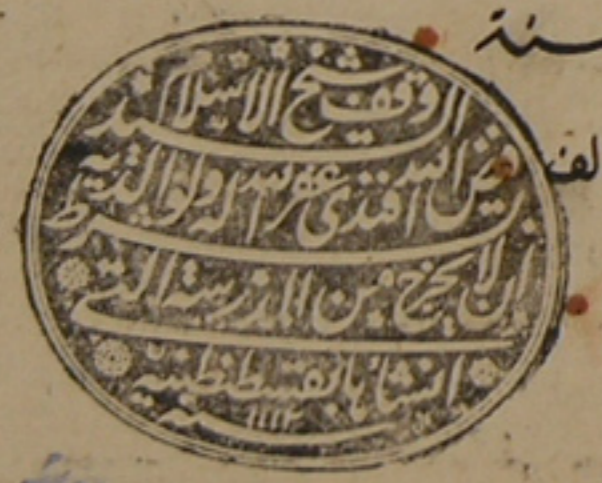 سنة
الف
وقف شيخ الاسلام السيد
فيض الله افندى غفر الله له ولوالديه
بشرط ان لا يخرج من المدرسة التى
انشأها بقسطنطينية
سنة ١١١٢